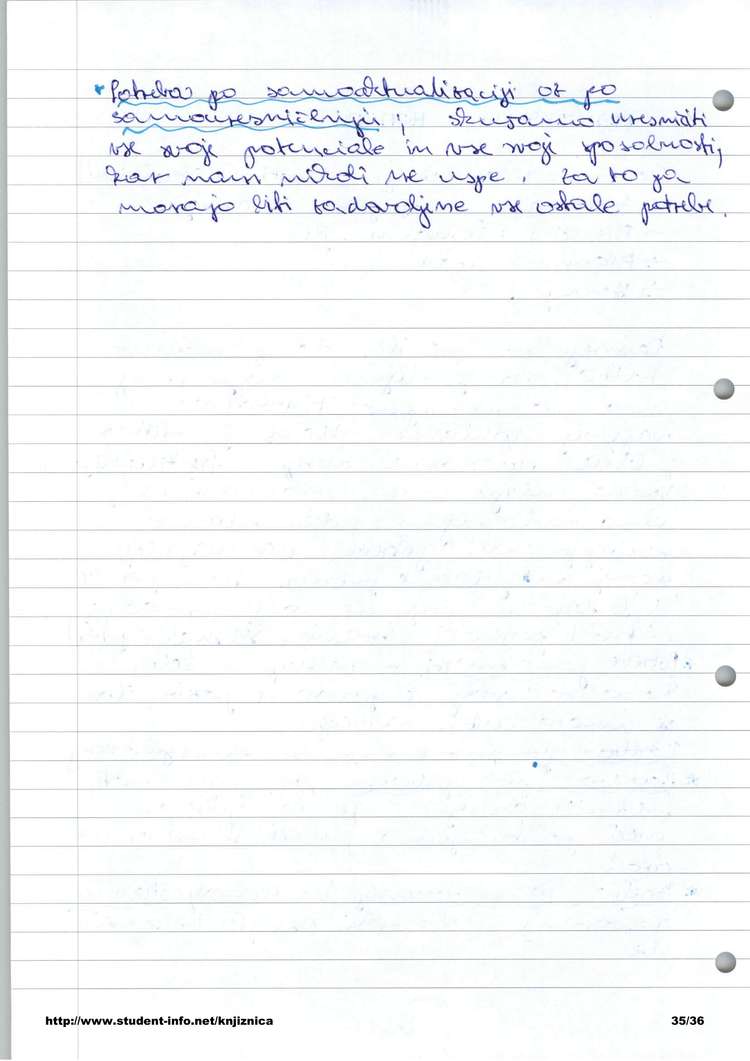 * Potreba po samoaktualizaciji oz po
samouresničenju; skušamo uresničiti
vse svoje potenciale in vse svoje sposobnosti,
kar nam nikoli ne uspe. Za to pa
morajo biti zadovoljene vse ostale potrebe.
http://www.student-info.net/knjiznica 35/36